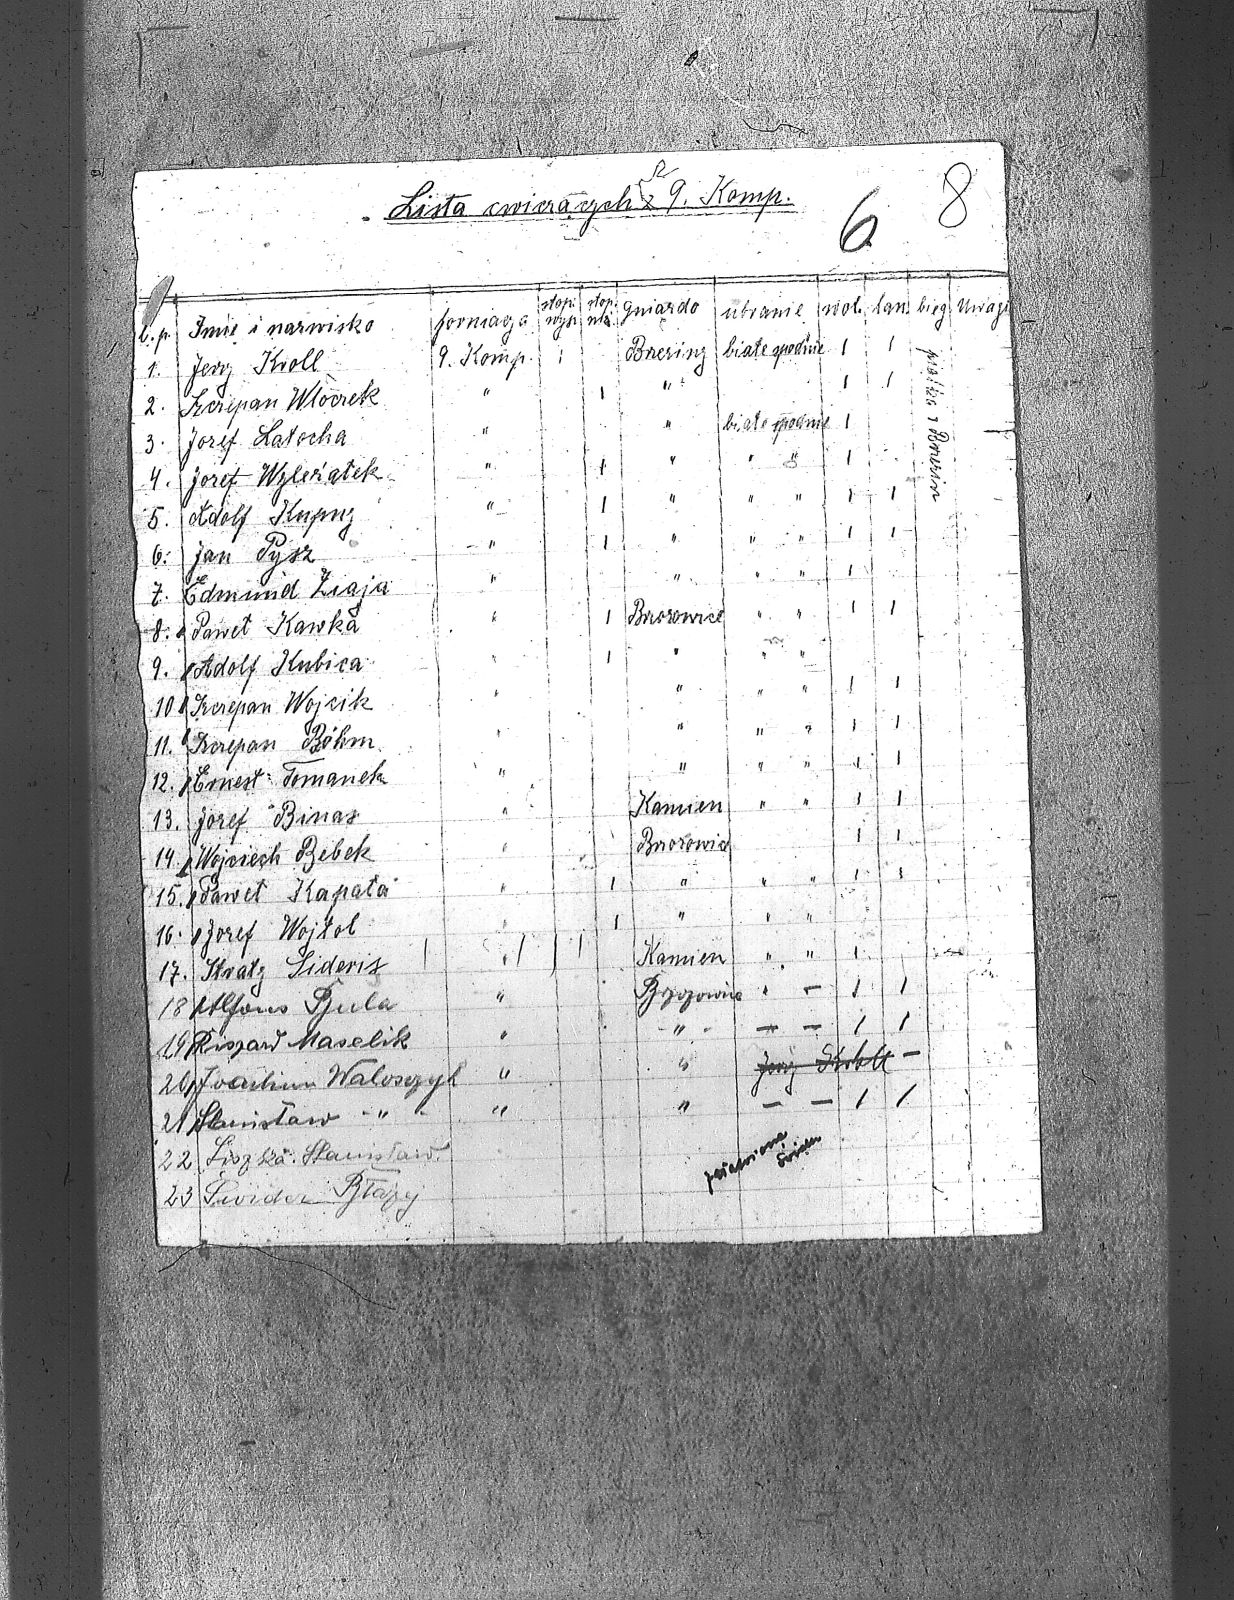 Lista cwiczących z 9. Komp.
6 8
l.p. Imie i nazwisko formacja stopi wyż. stop. niż. gniazdo ubranie wol. lan. bieg Uwagi
1. Jerzy Kroll 9. Komp. 1 Brzeziny białe spodnie 1 1
2. Szczepan Włoczek " 1 " 1 1
3. Jozef Latocha " " białe spodnie 1
4. Jozef Wyleżałek " 1 " " " 1
5. Adolf Kupny " 1 " " " 1 1
6. Jan Pysz " 1 " " " 1 1
7. Edmund Ziaja " " " " 1
8. Paweł Kawka " 1 Brzozowice " " 1 1
9. Adolf Kubica " 1 " " "
10 Szczepan Wojcik " " " " 1 1
11. Szczepan Böhm " " " " 1 1
12. Ernest Tomanek " " " " 1 1
13. Jozef Binas " Kamien " " 1 1
14. Wojciech Bebek " Brzozowic 1 1
15. Paweł Kapała " 1 " " " 1 1
16. Jozef Wojtol " 1 " " "
17. Sideris " 1 Kamien " " 1
18 Alfons Bula " Brzozowice " – 1 1
19 Riszard Maselik " " – – 1 1
20 Joachim Waloszzyk " " Jerzy –
21 Stanisław " " " – – 1 1
22 Liszka Stanisław
23 Świder Błażej